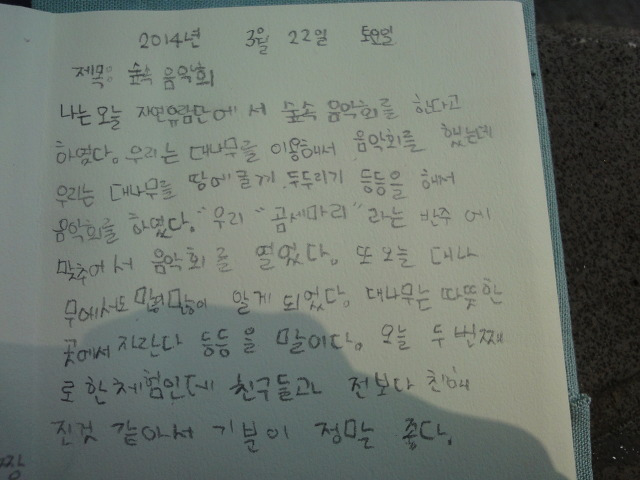 2014년 3월 22일 토요일
제목: 숲속 음악회
나는 오늘 자연유람단에서 숲속 음악회를 한다고
하였다. 우리는 대나무를 이용해서 음악회를 했는데
우리는 대나무를 땅에 두두리기 등등을 해서
음악회를 하였다. 우리 "곰세마리" 라는 반주에
맞추어서 음악회를 열었다. 또 오늘 대나
무에서도 많이 알게 되었다. 대나무는 따뜻한
곳에서 자란다 등등을 말이다. 오늘 두번째
로 한 체험인데 친구들과 전보다 친해
진것 같아서 기분이 정말 좋다.
짱